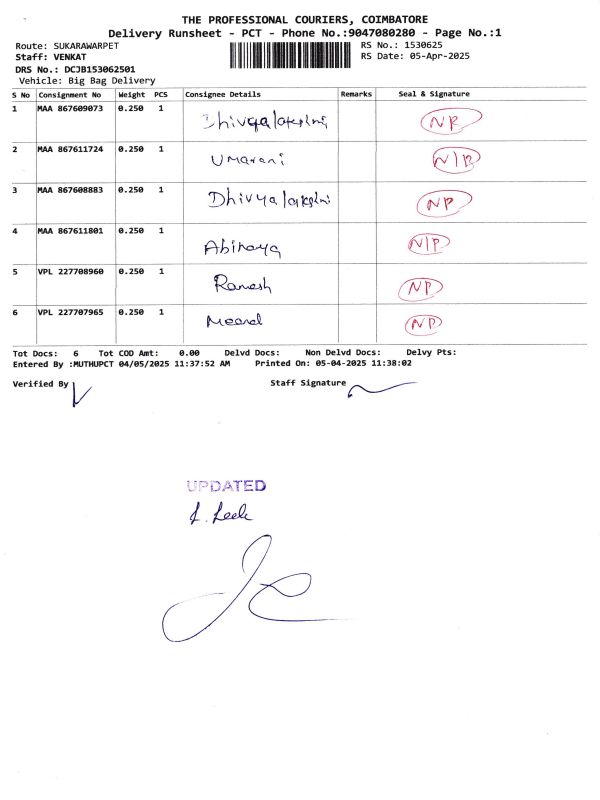 THE PROFESSIONAL COURIERS, COIMBATORE
Delivery Runsheet - PCT - Phone No.:9047080280 - Page No.:1
Route: SUKARAWARPET RS No.: 1530625
Staff: VENKAT RS Date: 05-Apr-2025
DRS No.: DCJB153062501
Vehicle: Big Bag Delivery
S No Consignment No Weight PCS Consignee Details Remarks Seal & Signature
1 MAA 867609073 0.250 1 Dhivyalakshmi NP
2 MAA 867611724 0.250 1 Umarani N/P
3 MAA 867608883 0.250 1 Dhivyalakshmi NP
4 MAA 867611801 0.250 1 Abinaya N/P
5 VPL 227708960 0.250 1 Ramesh NP
6 VPL 227707965 0.250 1 NP
Tot Docs: 6 Tot COD Amt: 0.00 Delvd Docs: Non Delvd Docs: Delvy Pts:
Entered By :MUTHUPCT 04/05/2025 11:37:52 AM Printed On: 05-04-2025 11:38:02
Verified By Staff Signature
UPDATED